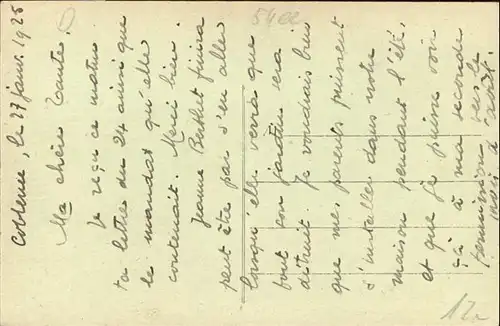 Coblence, le 27 janv. 1925
Ma chère Tante.
Je reçu ce matin
ta lettre du 24 ainsi que
le mandat qu'elle
contenait. Merci bien.
Jeanne Berthet finira
peut être par s'en aller
lorsqu'elle verra que
tout son jardin sera
détruit. Je voudrais bien
que mes parents puissent
s'installer dans notre
maison pendant l'été,
et que je puisse voir
çà à ma seconde
permission vers le
mois d'
5402
12